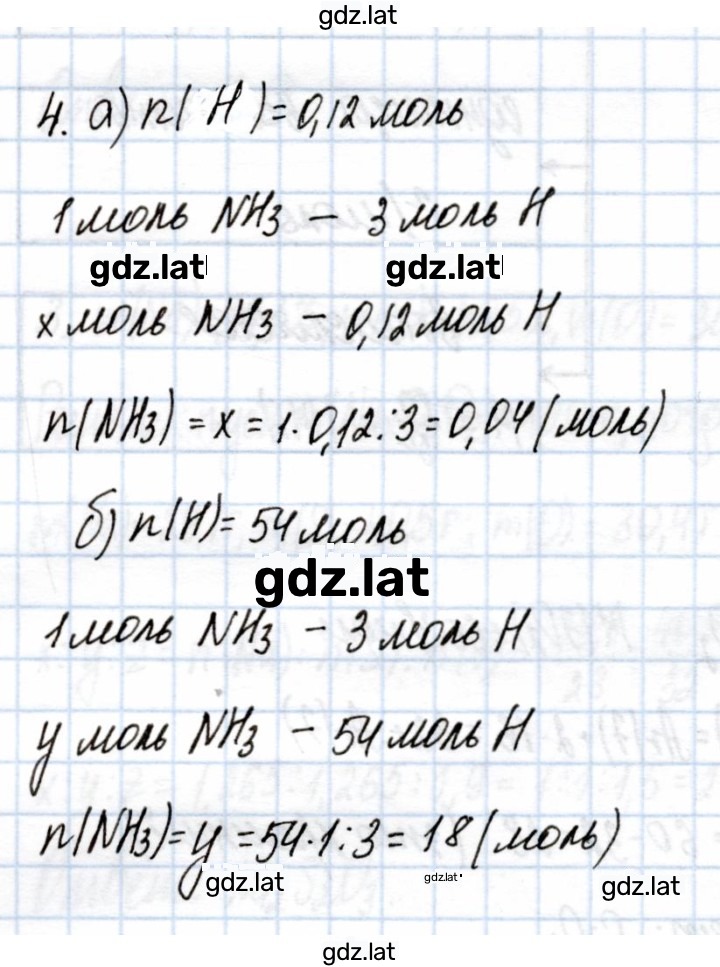 gdz.lat
4. а) n(H)= 0,12 моль
1 моль NH3 – 3 моль H
gdz.lat gdz.lat
x моль NH3 – 0,12 моль H
n(NH3) = x = 1·0,12:3=0,04(моль)
б) n(H)= 54 моль
gdz.lat
1 моль NH3 – 3 моль H
y моль NH3 – 54 моль H
n(NH3)= y =54·1:3= 18 (моль)
gdz.lat gdz.lat gdz.lat
gdz.lat